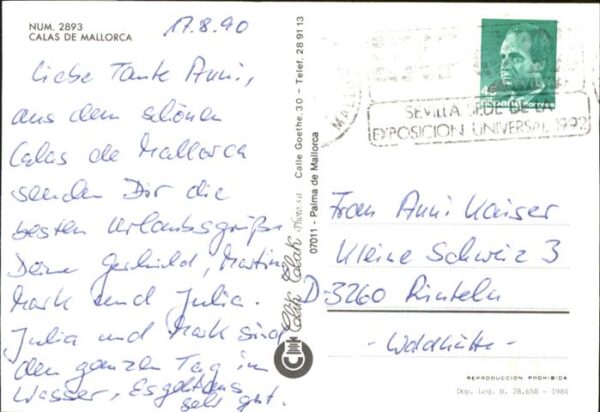 NUM. 2893
CALAS DE MALLORCA
17.8.90
Liebe Tante Anni,
aus dem schönen
Calas de Mallorca
senden Dir die
besten Urlaubsgrüße
Deine Gerhild, Martin,
Mark und Julia.
Julia und Mark sind
den ganzen Tag im
Wasser, Es geht uns
sehr gut.
Calle Goethe, 30 - Telef. 28 91 13
07011 - Palma de Mallorca
SEVILLA SEDE DE LA
EXPOSICION UNIVERSAL 1992
España correos
Frau Anni Kaiser
Kleine Schweiz 3
D-3260 Rinteln
- Waldhütte -
REPRODUCCION PROHIBIDA
Dep. Leg. B. 28.658 - 1984